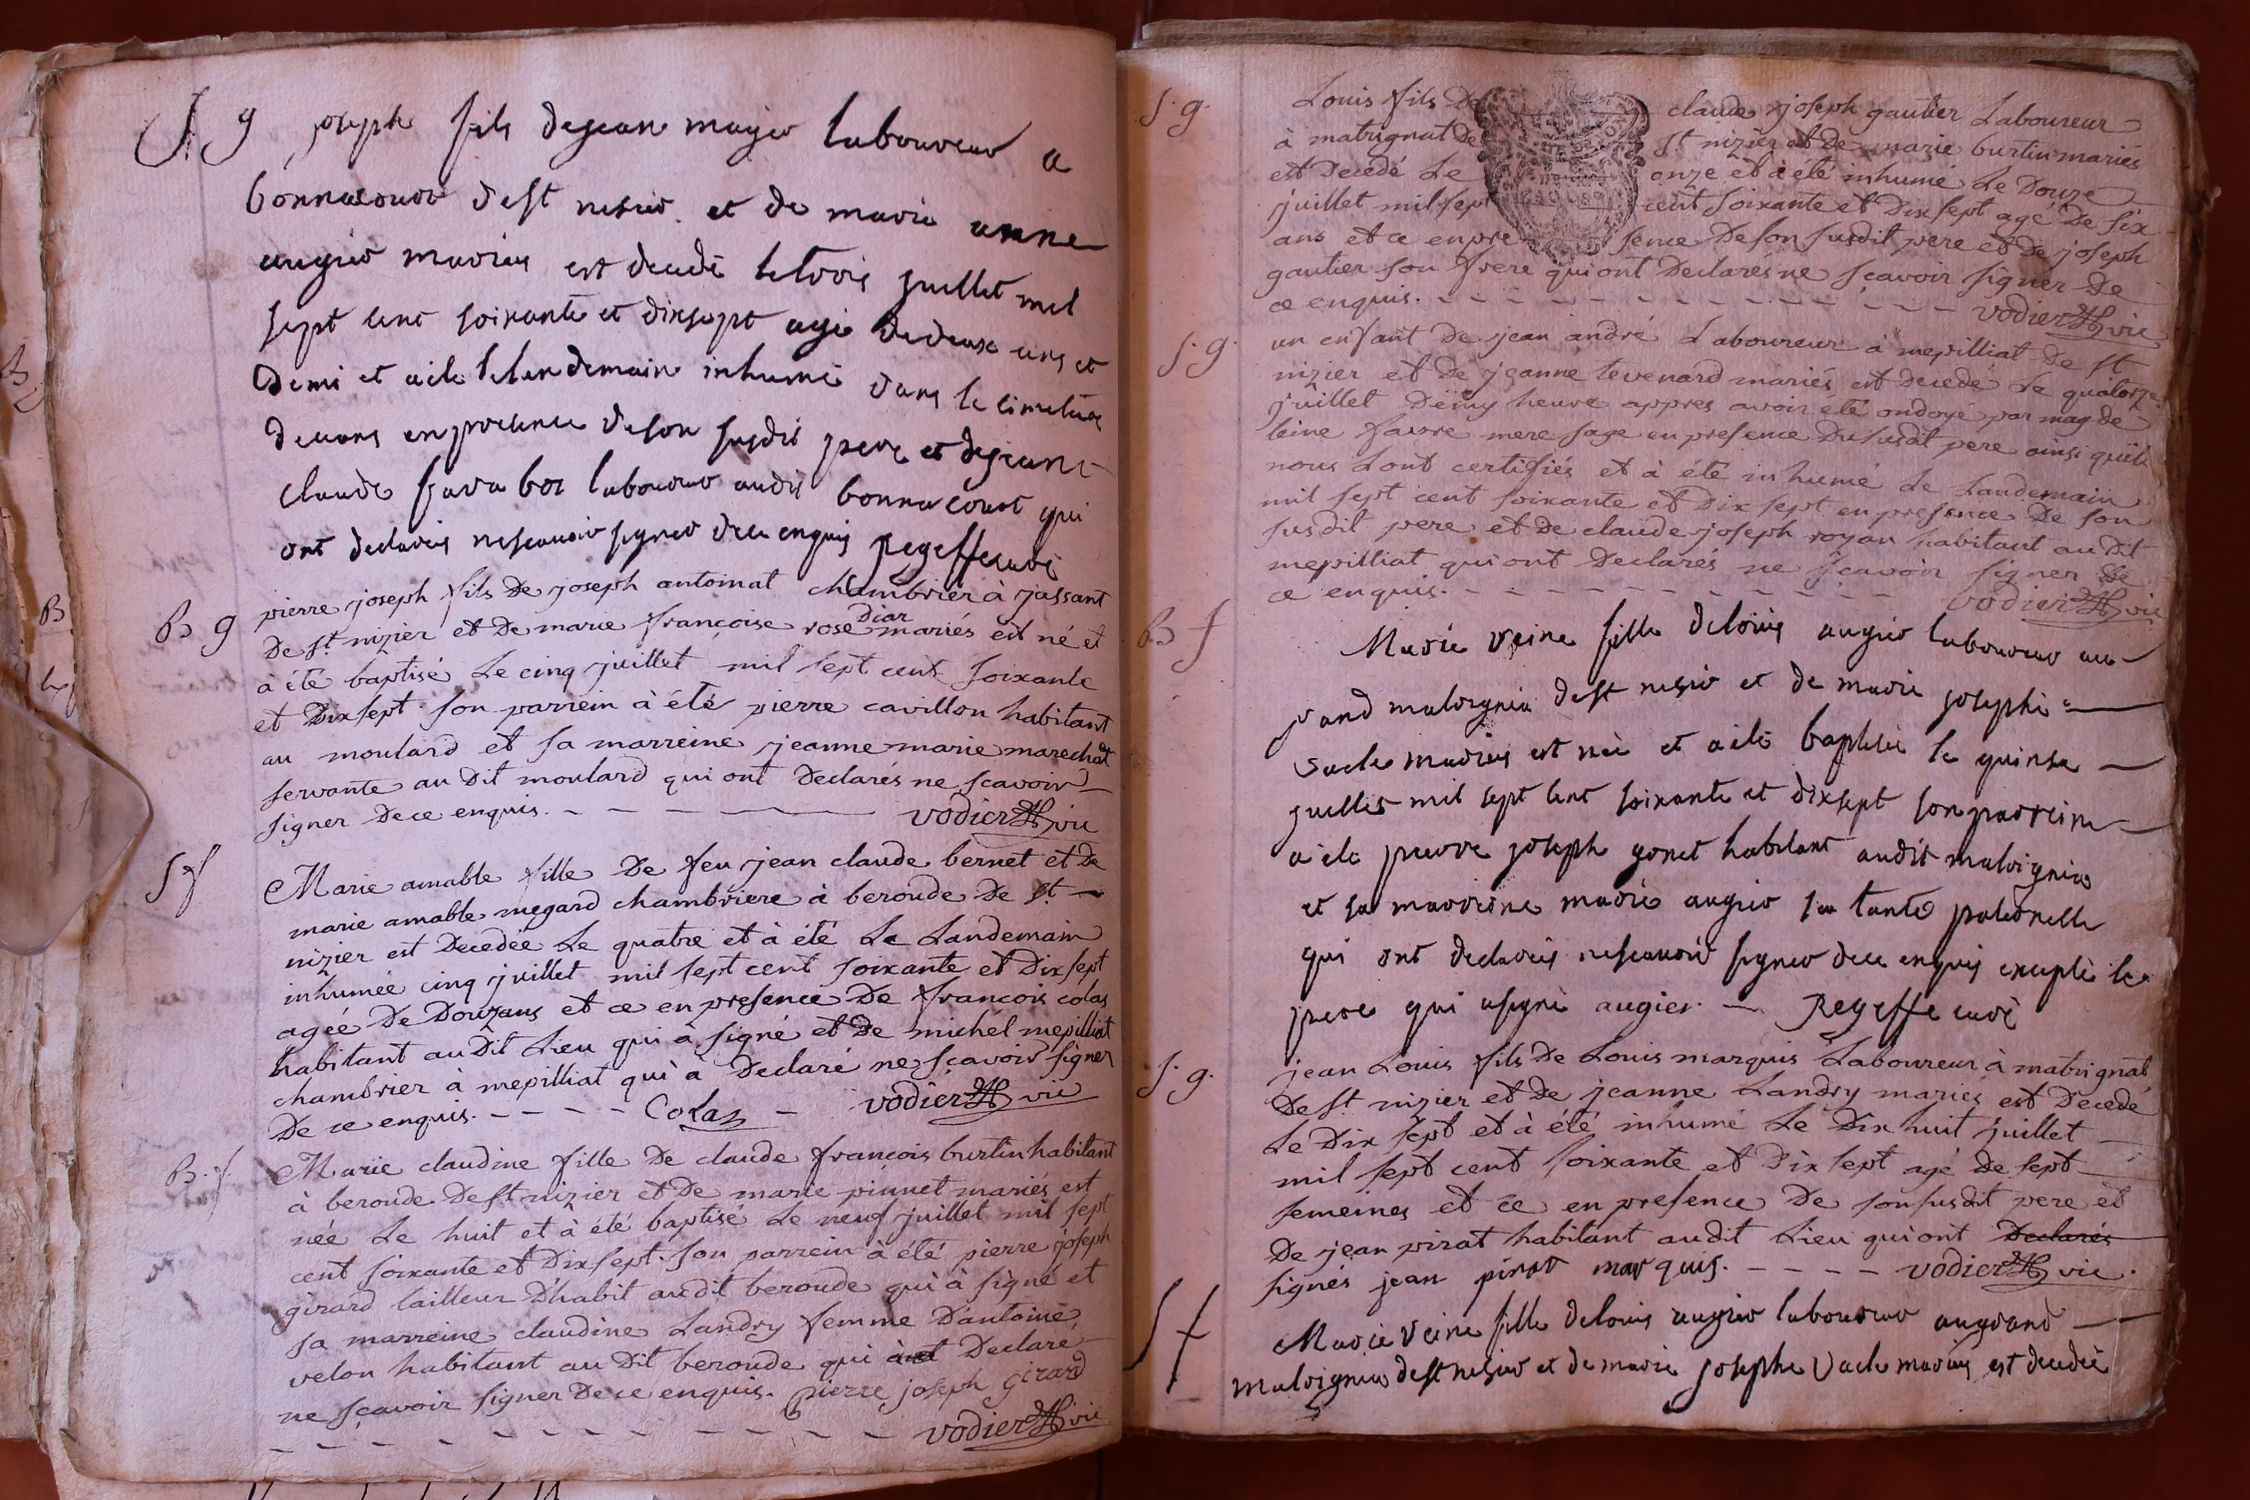 S g joseph fils dejean mugio laboureur a
bonnacourt dest nesier et de marie anne
augier mariés est decedé letrois juillet mil
sept cent soixante et dixsept agé dedeux ans et
demi et aete lelendemain inhumé dans le cimetiere
deceans enpresence deson susdit pere et dejeune
claude favabor laboureur audit bonnacourt qui
ont declarés nescauoir signer dece enquis Regeffe curé
B g pierre joseph fils De joseph antoinat chambrier à jassant
De st nizier et De marie françoise rose Diar mariés est né et
à été baptisé Le cinq juillet mil sept cent soixante
et Dix sept son parrein à été pierre cavillon habitant
au moulard et sa marreine jeanne marie marechat
servante au Dit moulard qui ont Declarés ne sçavoir
signer Dece enquis. vodier vic
S f Marie amable fille De feu jean claude bernet et De
marie amable megard chambriere à beroude De st
nizier est Decedée Le quatre et à été Le Landemain
inhumée cinq juillet mil sept cent soixante et Dix sept
agée De Douz ans et ce en presence De françois colas
habitant au Dit Lieu qui à signé et De michél mepilliat
chambrier à mepilliat qui a Declaré ne sçavoir signer
De ce enquis. Colas vodier vic
B. f. Marie claudine fille De claude françois burtin habitant
à beroude De st nizier et De marie pinnet mariés est
née Le huit et à été baptisé Le neuf juillet mil sept
cent soixante et Dix sept. son parrein à été pierre joseph
girard tailleur D'habit audit beroude qui à signé et
sa marreine claudine Landry femme D'antoine
velon habitant au Dit beroude qui à Declaré
ne sçavoir signer De ce enquis. pierre joseph girard
vodier vic
S. g. Louis fils De claude joseph gautier Laboureur
à matrignat De st nizier et De marie burtin mariés
est Decedé Le onze et à été inhumé Le Douze
juillet mil sept cent soixante et Dix sept agé De six
ans et ce en presence De son susdit pere et De joseph
gautier son frere qui ont Declarés ne sçavoir signer De
ce enquis. vodier vic
S. g. un enfant De jean andré Laboureur à mepilliat De st
nizier et De jeanne levenard mariés est decedé Le quatorze
juillet Demy heure appres avoir été ondoyé par magde
leine favre mere sage en presence Du susdit pere ainsi qu'ils
nous Lont certifiés et à été inhumé Le Landemain
mil sept cent soixante et Dix sept en presence De son
susdit pere et De claude joseph royan habitant au Dit
mepilliat qui ont Declarés ne sçavoir signer De
ce enquis. vodier vic
B f Marie reine fille delouis augier laboureur au
grand maloignia dest nesier et de marie josephe
vacle mariés est née et aété baptisée le quinse
juellet mil sept cent soixante et dixsept son parrein
a ete pierre joseph gonet habitant audit malvignier
et sa marreine marie augier sa tante paternelle
qui ont declarés nescauoir signer dece enquis excepté le
pere qui asigné augier. Regeffe curé
S. g. jean Louis fils De Louis marquis Laboureur à matrignat
De st nizier et De jeanne Landry mariés est Decedé
Le Dix sept et à été inhumé Le Dix huit juillet
mil sept cent soixante et Dix sept agé De sept
semeines et ce en presence De son susdit pere et
De jean pirat habitant audit Lieu qui ont Declarés
signés jean pirat marquis. vodier vic.
S f Marie reine fille delouis augier laboureur augrand
malvignier dest nesier et de marie josephe vacle mariés est decedée